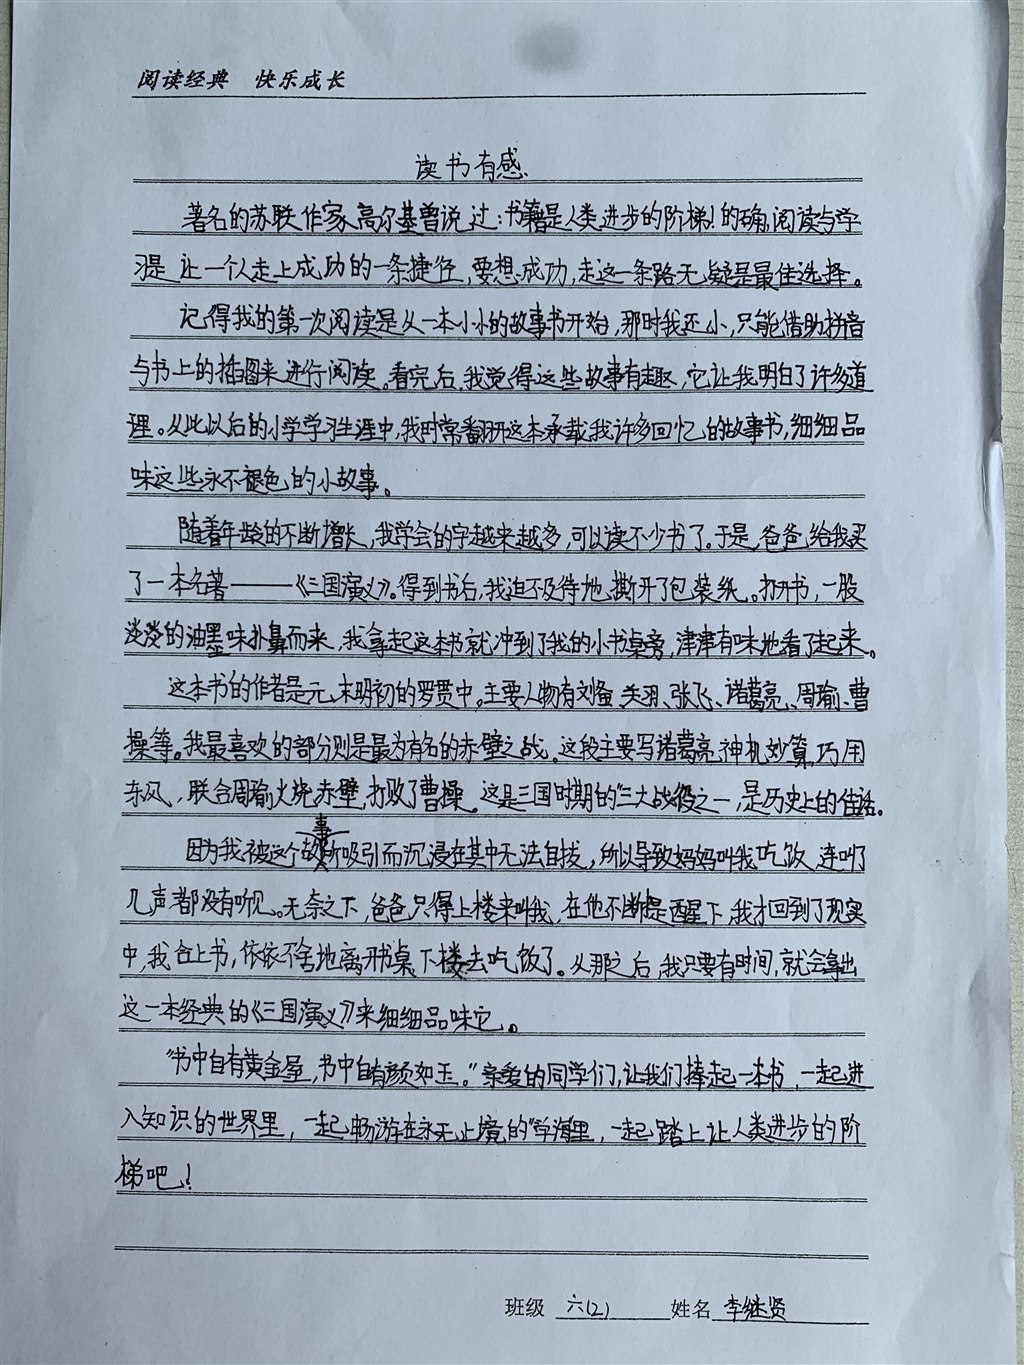 阅读经典 快乐成长
读书有感
著名的苏联作家高尔基曾说过:书籍是人类进步的阶梯!的确,阅读与学
习是让一个人走上成功的一条捷径,要想成功,走这一条路无疑是最佳选择。
记得我的第一次阅读是从一本小小的故事书开始,那时我还小,只能借助拼音
与书上的插图来进行阅读。看完后,我觉得这些故事有趣,它让我明白了许多道
理。从此以后的小学学习生涯中,我时常翻开这本承载我许多回忆的故事书,细细品
味这些永不褪色的小故事。
随着年龄的不断增长,我学会的字越来越多,可以读不少书了。于是,爸爸给我买
了一本名著——《三国演义》。得到书后,我迫不及待地撕开了包装纸。打开书,一股
淡淡的油墨味扑鼻而来,我拿起这本书就冲到了我的小书桌旁,津津有味地看了起来。
这本书的作者是元末明初的罗贯中。主要人物有刘备、关羽、张飞、诸葛亮、周瑜、曹
操等。我最喜欢的部分则是最为有名的赤壁之战。这段主要写诸葛亮神机妙算,巧用
东风,联合周瑜火烧赤壁,打败了曹操。这是三国时期的三大战役之一,是历史上的佳话。
因为我被这个故事所吸引而沉浸在其中无法自拔,所以导致妈妈叫我吃饭,连叫了
几声都没有听见。无奈之下,爸爸只得上楼来叫我,在他不断提醒下,我才回到了现实
中,我合上书,依依不舍地离开书桌下楼去吃饭了。从那之后,我只要有时间,就会拿出
这一本经典的《三国演义》来细细品味它。
"书中自有黄金屋,书中自有颜如玉。"亲爱的同学们,让我们捧起一本书,一起进
入知识的世界里,一起畅游在永无止境的"学海"里,一起踏上让人类进步的阶
梯吧!
班级 六(2) 姓名 李继贤